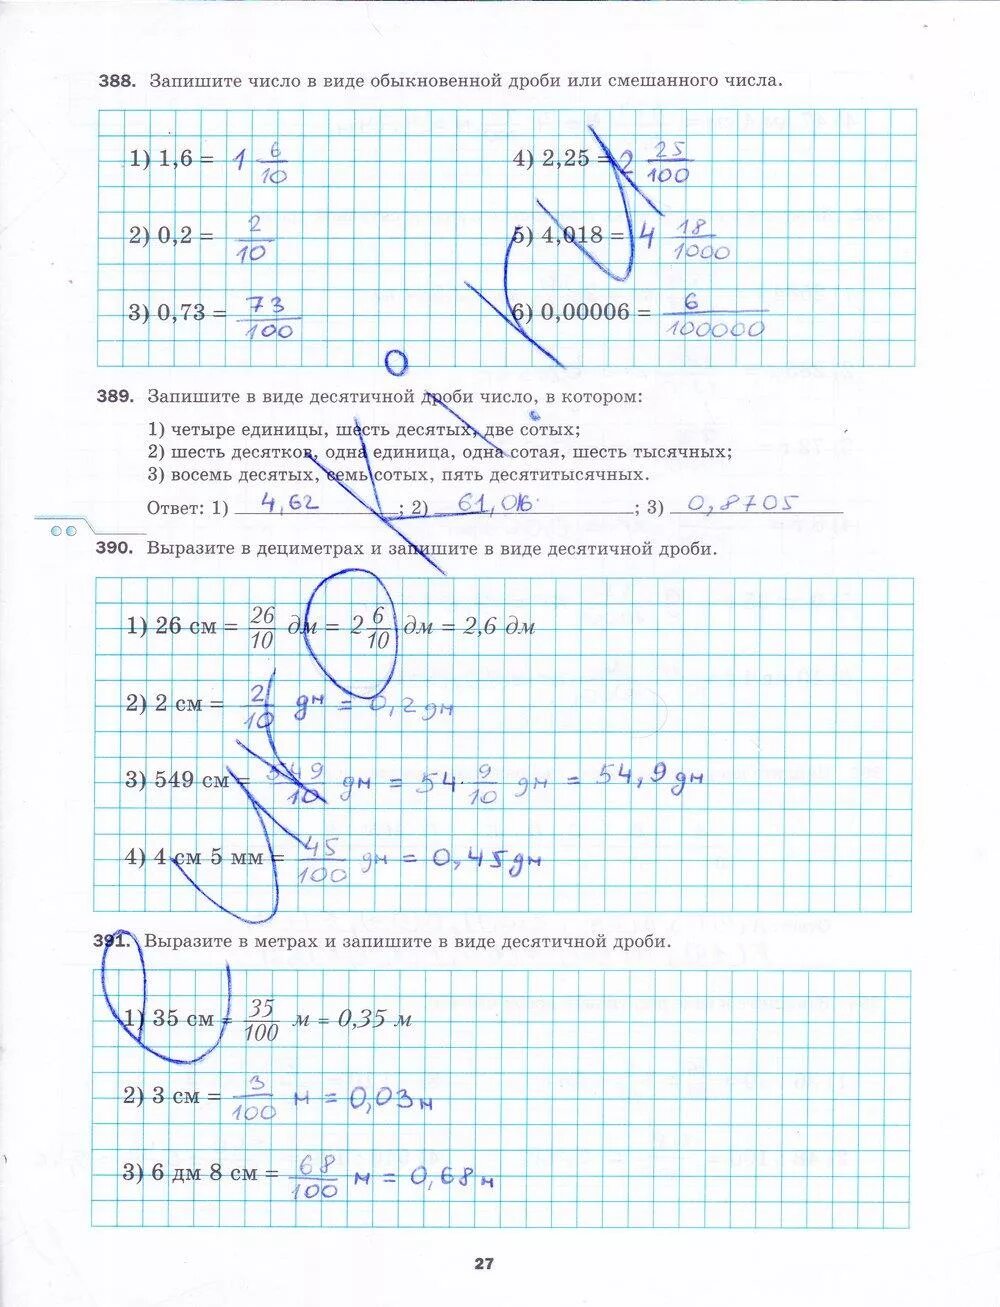 388. Запишите число в виде обыкновенной дроби или смешанного числа.
1) 1,6 = 1 6/10
4) 2,25 = 2 25/100
2) 0,2 = 2/10
5) 4,018 = 4 18/1000
3) 0,73 = 73/100
6) 0,00006 = 6/100000
389. Запишите в виде десятичной дроби число, в котором:
1) четыре единицы, шесть десятых, две сотых;
2) шесть десятков, одна единица, одна сотая, шесть тысячных;
3) восемь десятых, семь сотых, пять десятитысячных.
Ответ: 1) 4,62 ; 2) 61,016 ; 3) 0,8705
390. Выразите в дециметрах и запишите в виде десятичной дроби.
1) 26 см = 26/10 дм = 2 6/10 дм = 2,6 дм
2) 2 см = 2/10 дм = 0,2 дм
3) 549 см = 549/10 дм = 54 9/10 дм = 54,9 дм
4) 4 см 5 мм = 45/100 дм = 0,45 дм
391. Выразите в метрах и запишите в виде десятичной дроби.
1) 35 см = 35/100 м = 0,35 м
2) 3 см = 3/100 м = 0,03 м
3) 6 дм 8 см = 68/100 м = 0,68 м
27